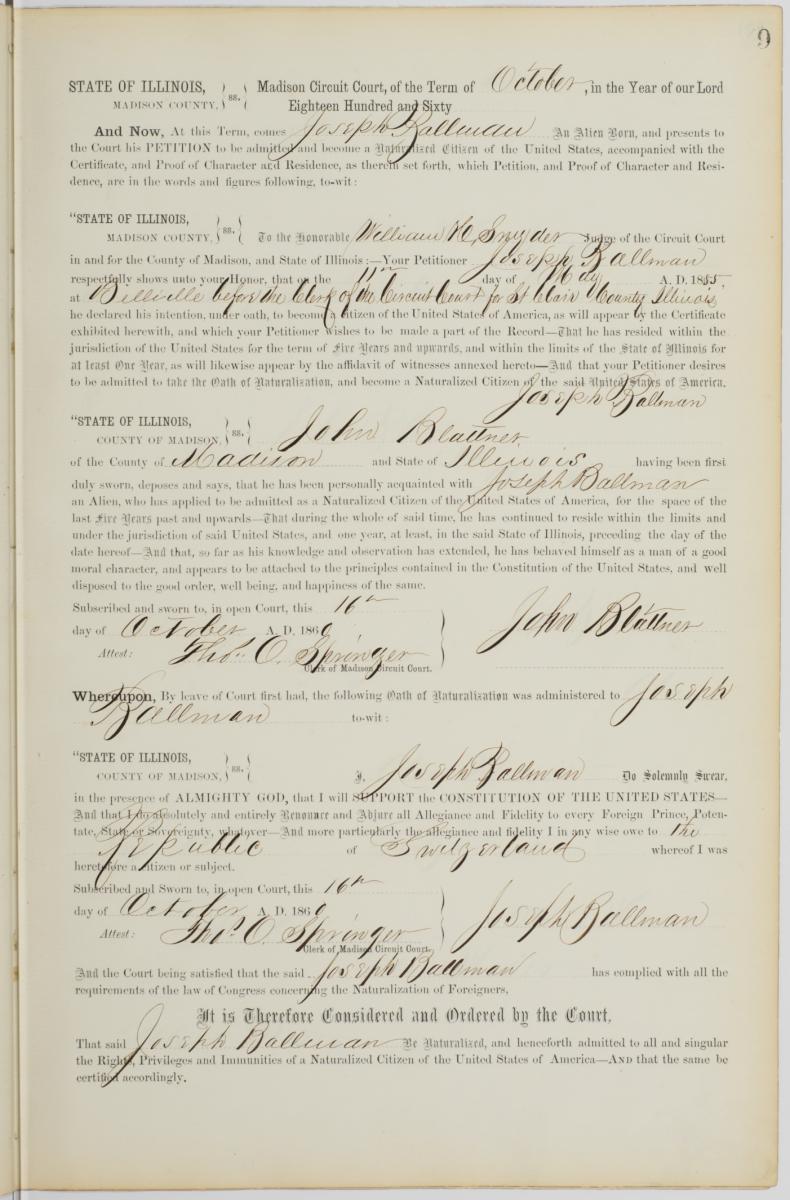 9
STATE OF ILLINOIS, } ss. { Madison Circuit Court, of the Term of October, in the Year of our Lord
MADISON COUNTY, Eighteen Hundred and Sixty
And Now, At this Term, comes Joseph Ballman An Alien Born, and presents to
the Court his PETITION to be admitted and become a Naturalized Citizen of the United States, accompanied with the
Certificate, and Proof of Character and Residence, as therein set forth, which Petition, and Proof of Character and Resi-
dence, are in the words and figures following, to-wit:
"STATE OF ILLINOIS,
MADISON COUNTY, } ss. { To the Honorable William H. Snyder Judge of the Circuit Court
in and for the County of Madison, and State of Illinois:—Your Petitioner Joseph Ballman
respectfully shows unto your Honor, that on the 11th day of May A. D. 1855,
at Bellville before the Clerk of the Circuit Court for St Clair County Illinois
he declared his intention, under oath, to become a citizen of the United States of America, as will appear by the Certificate
exhibited herewith, and which your Petitioner wishes to be made a part of the Record—That he has resided within the
jurisdiction of the United States for the term of Five Years and upwards, and within the limits of the State of Illinois for
at least One Year, as will likewise appear by the affidavit of witnesses annexed hereto—And that your Petitioner desires
to be admitted to take the Oath of Naturalization, and become a Naturalized Citizen of the said United States of America.
Joseph Ballman
"STATE OF ILLINOIS,
COUNTY OF MADISON, } ss. { John Blattner
of the County of Madison and State of Illinois having been first
duly sworn, deposes and says, that he has been personally acquainted with Joseph Ballman
an Alien, who has applied to be admitted as a Naturalized Citizen of the United States of America, for the space of the
last Five Years past and upwards—That during the whole of said time, he has continued to reside within the limits and
under the jurisdiction of said United States, and one year, at least, in the said State of Illinois, preceding the day of the
date hereof—And that, so far as his knowledge and observation has extended, he has behaved himself as a man of a good
moral character, and appears to be attached to the principles contained in the Constitution of the United States, and well
disposed to the good order, well being, and happiness of the same.
Subscribed and sworn to, in open Court, this 16th
day of October A. D. 1860 } John Blattner
Attest: Thos. O. Springer
Clerk of Madison Circuit Court.
Whereupon, By leave of Court first had, the following Oath of Naturalization was administered to Joseph
Ballman to-wit:
"STATE OF ILLINOIS,
COUNTY OF MADISON, } ss. { I, Joseph Ballman Do Solemnly Swear,
in the presence of ALMIGHTY GOD, that I will SUPPORT the CONSTITUTION OF THE UNITED STATES—
And that I do absolutely and entirely Renounce and Abjure all Allegiance and Fidelity to every Foreign Prince, Poten-
tate, State or Sovereignty, whatever—And more particularly the allegiance and fidelity I in any wise owe to the
Republic of Switzerland whereof I was
heretofore a citizen or subject.
Subscribed and Sworn to, in open Court, this 16th
day of October A. D. 1860 } Joseph Ballman
Attest: Thos. O. Springer
Clerk of Madison Circuit Court.
And the Court being satisfied that the said Joseph Ballman has complied with all the
requirements of the law of Congress concerning the Naturalization of Foreigners,
It is Therefore Considered and Ordered by the Court,
That said Joseph Ballman Be Naturalized, and henceforth admitted to all and singular
the Rights, Privileges and Immunities of a Naturalized Citizen of the United States of America—AND that the same be
certified accordingly.